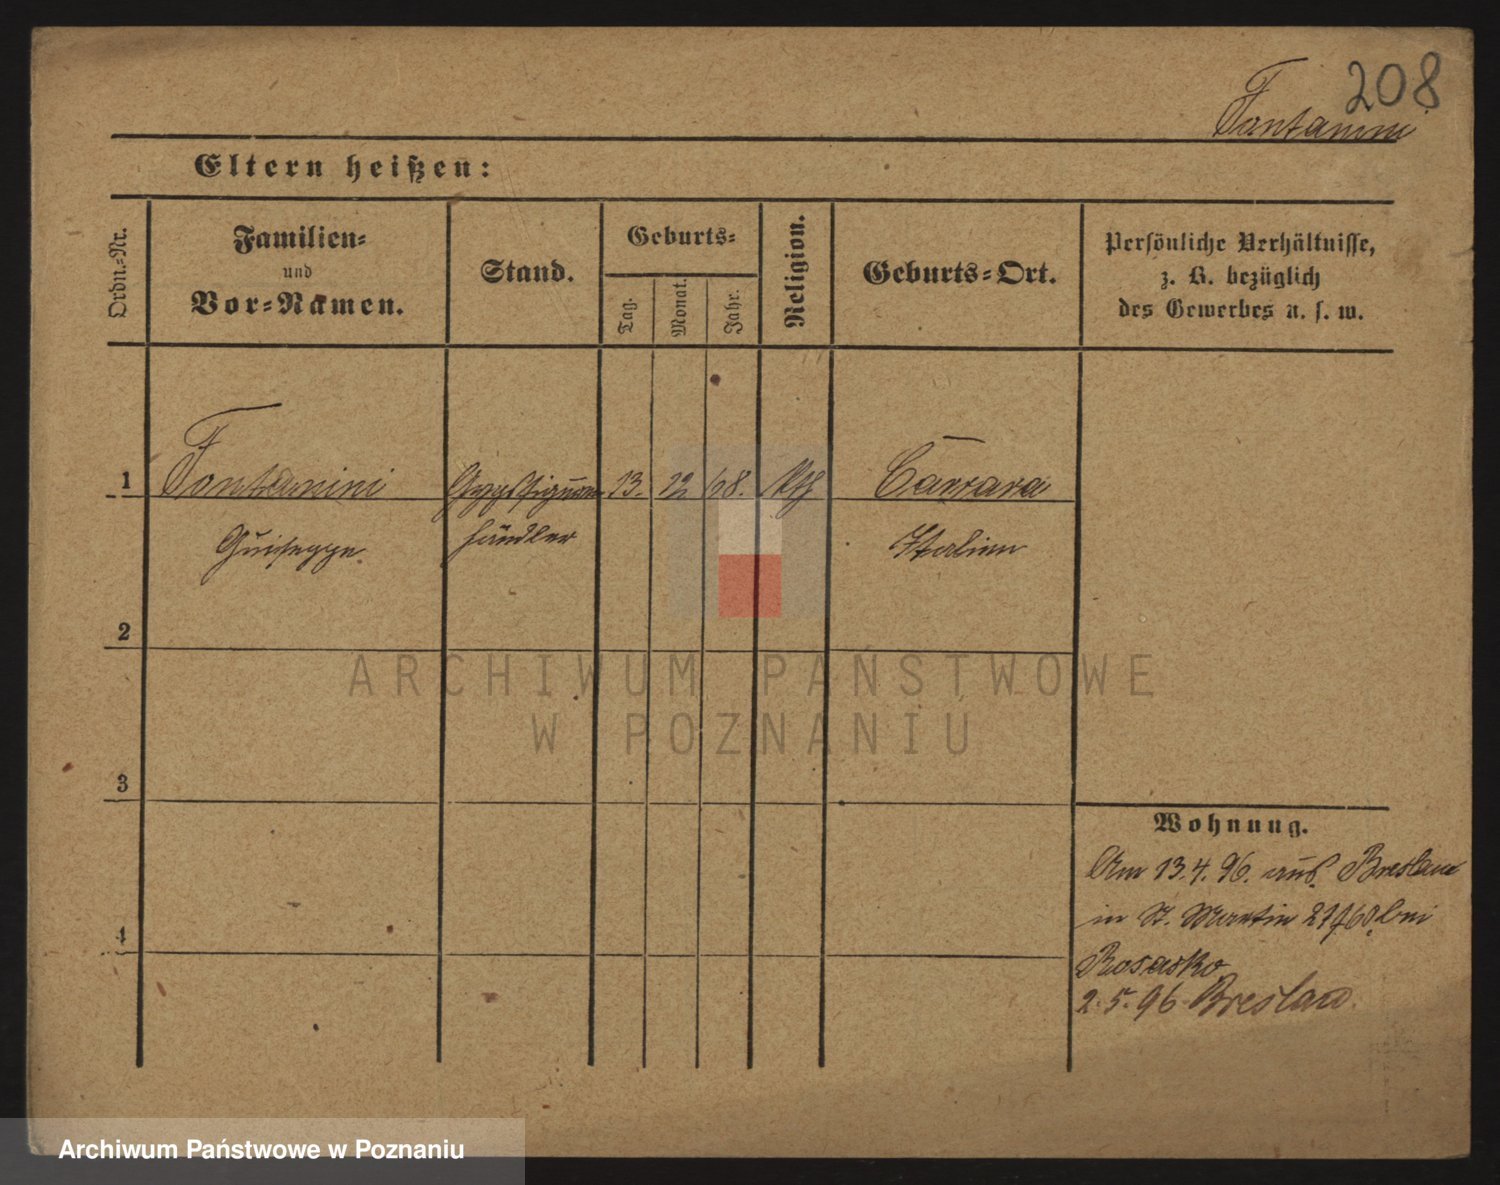 208
Fontanini
Eltern heißen:
Ordn.-Nr.
Familien-
und
Vor-Namen.
Stand.
Geburts-
Tag.
Monat.
Jahr.
Religion.
Geburts-Ort.
Persönliche Verhältnisse,
z. B. bezüglich
des Gewerbes u. s. w.
1
Fontanini
Gypsfiguren
13.
12
68.
Kth
Carrara
Guiseppe
händler
Italien
2
3
4
Wohnung.
Am 13.4.96. aus Breslau
in St. Martin 27 bei
Rosasko
2.5.96 Breslau.
ARCHIWUM PAŃSTWOWE
W POZNANIU
Archiwum Państwowe w Poznaniu